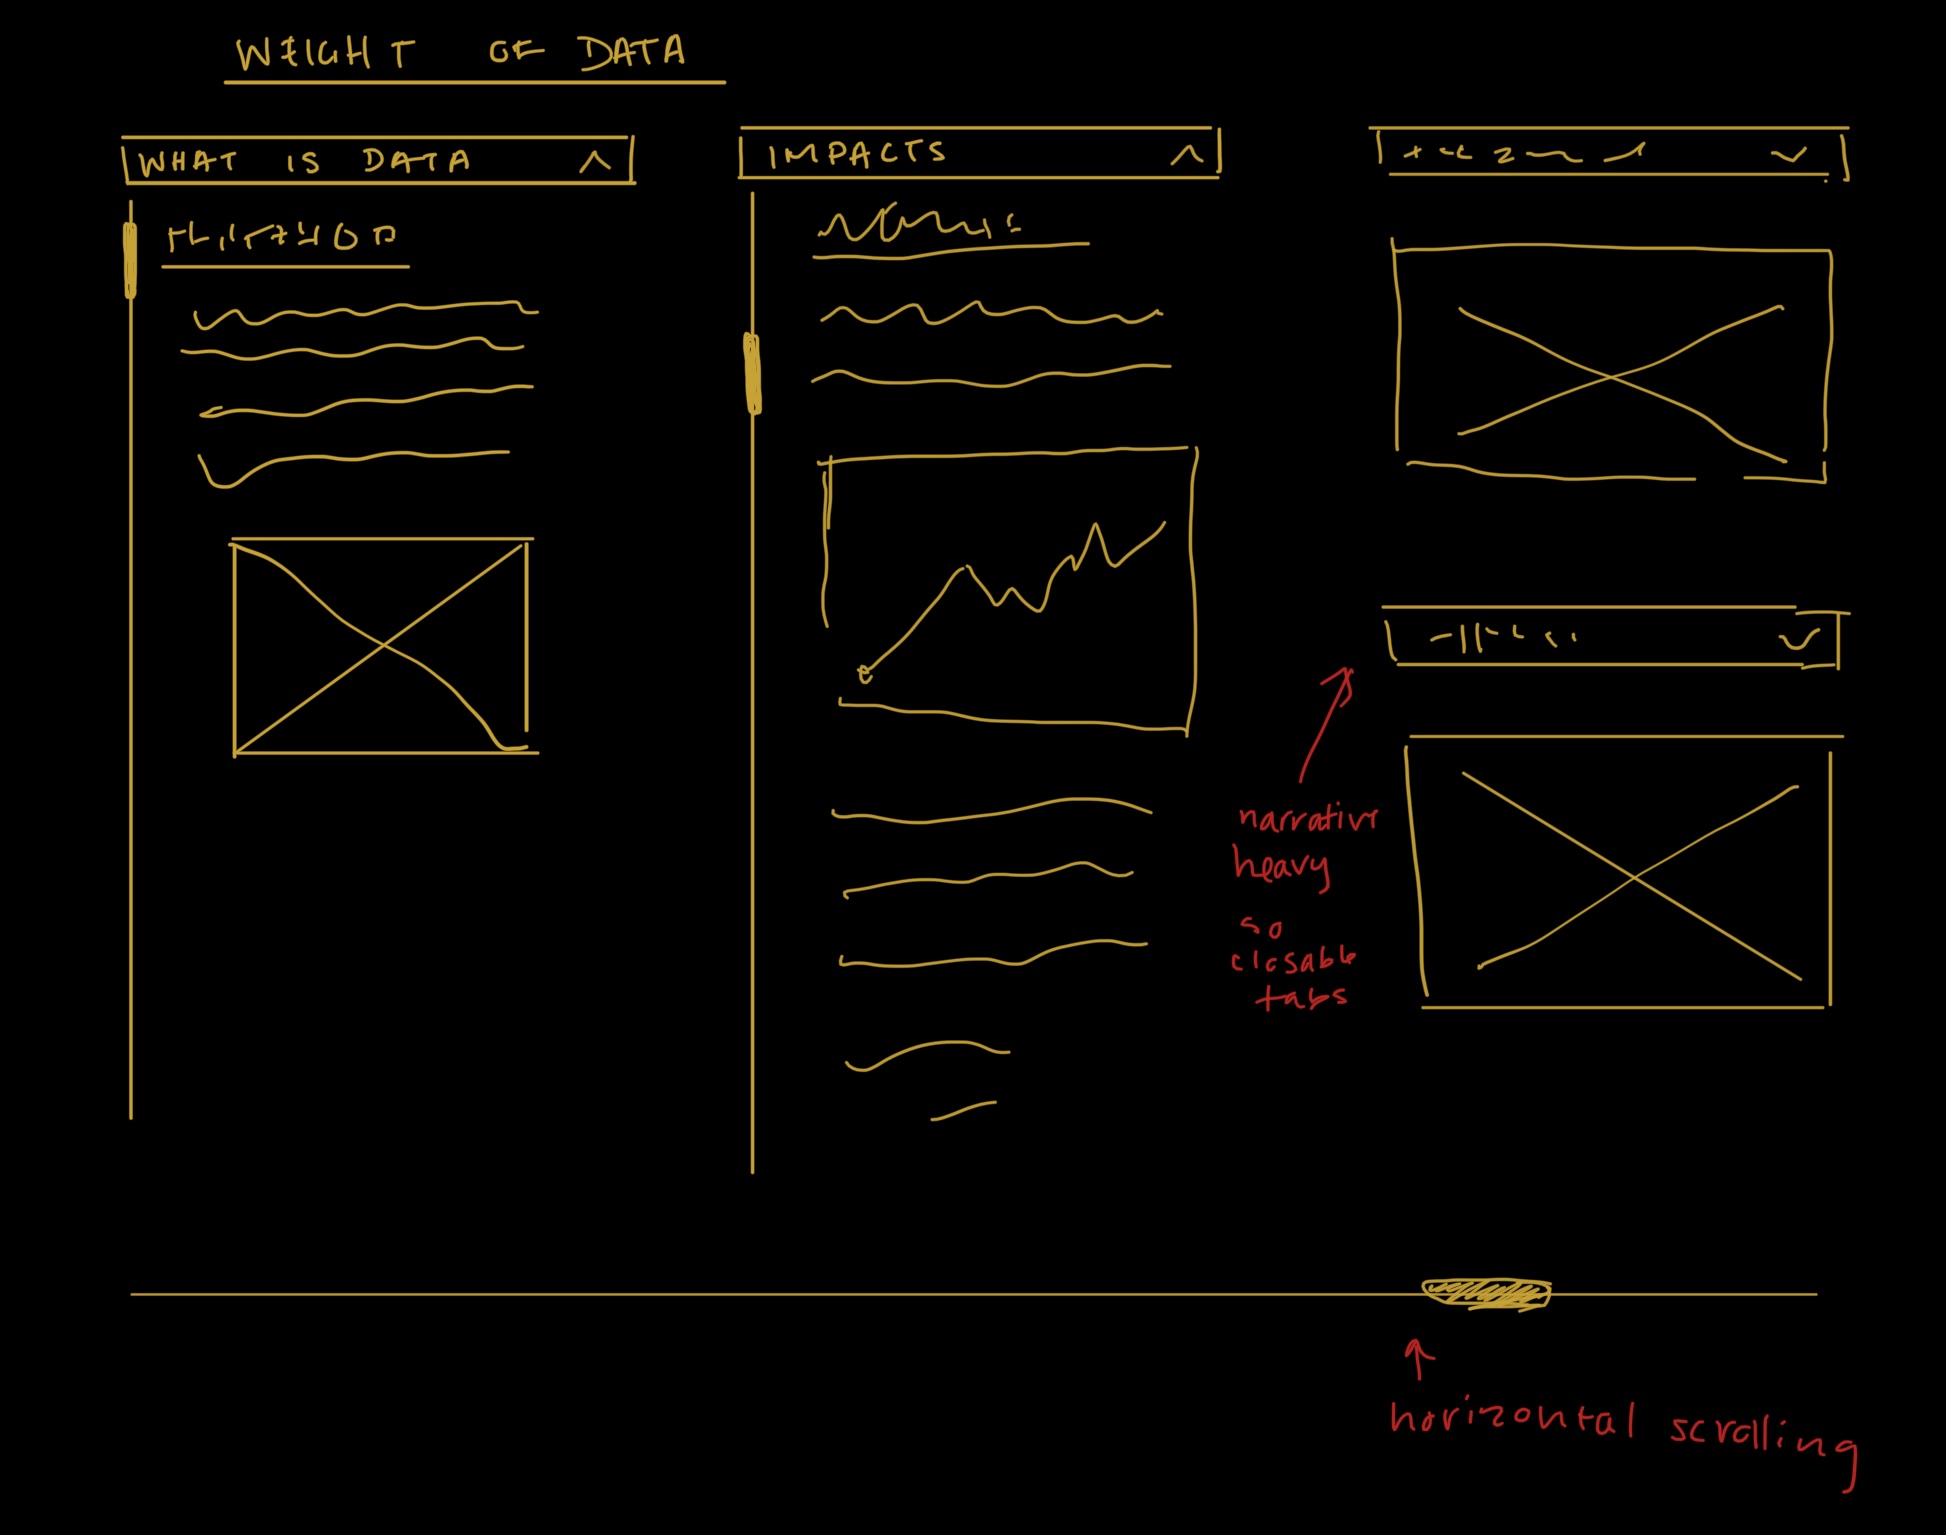 WEIGHT OF DATA
WHAT IS DATA
IMPACTS
narrative
heavy
so
closable
tabs
horizontal scrolling